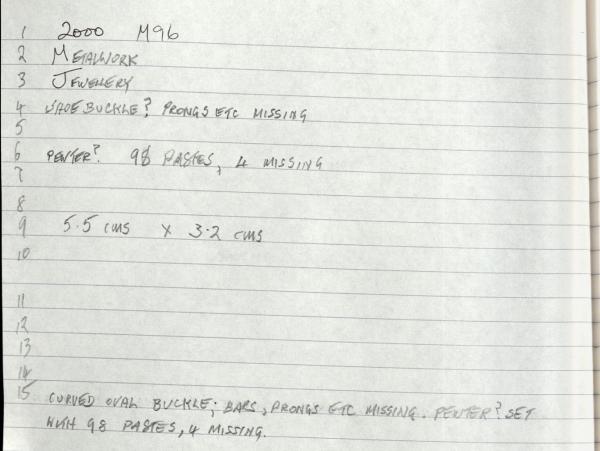 1 2000 M96
2 METALWORK
3 JEWELLERY
4 SHOE BUCKLE? PRONGS ETC MISSING
5
6 PEWTER? 98 PASTES, 4 MISSING
7
8
9 5.5 cms x 3.2 cms
10
11
12
13
14
15 CURVED OVAL BUCKLE; BARS, PRONGS ETC MISSING. PEWTER? SET
WITH 98 PASTES, 4 MISSING.